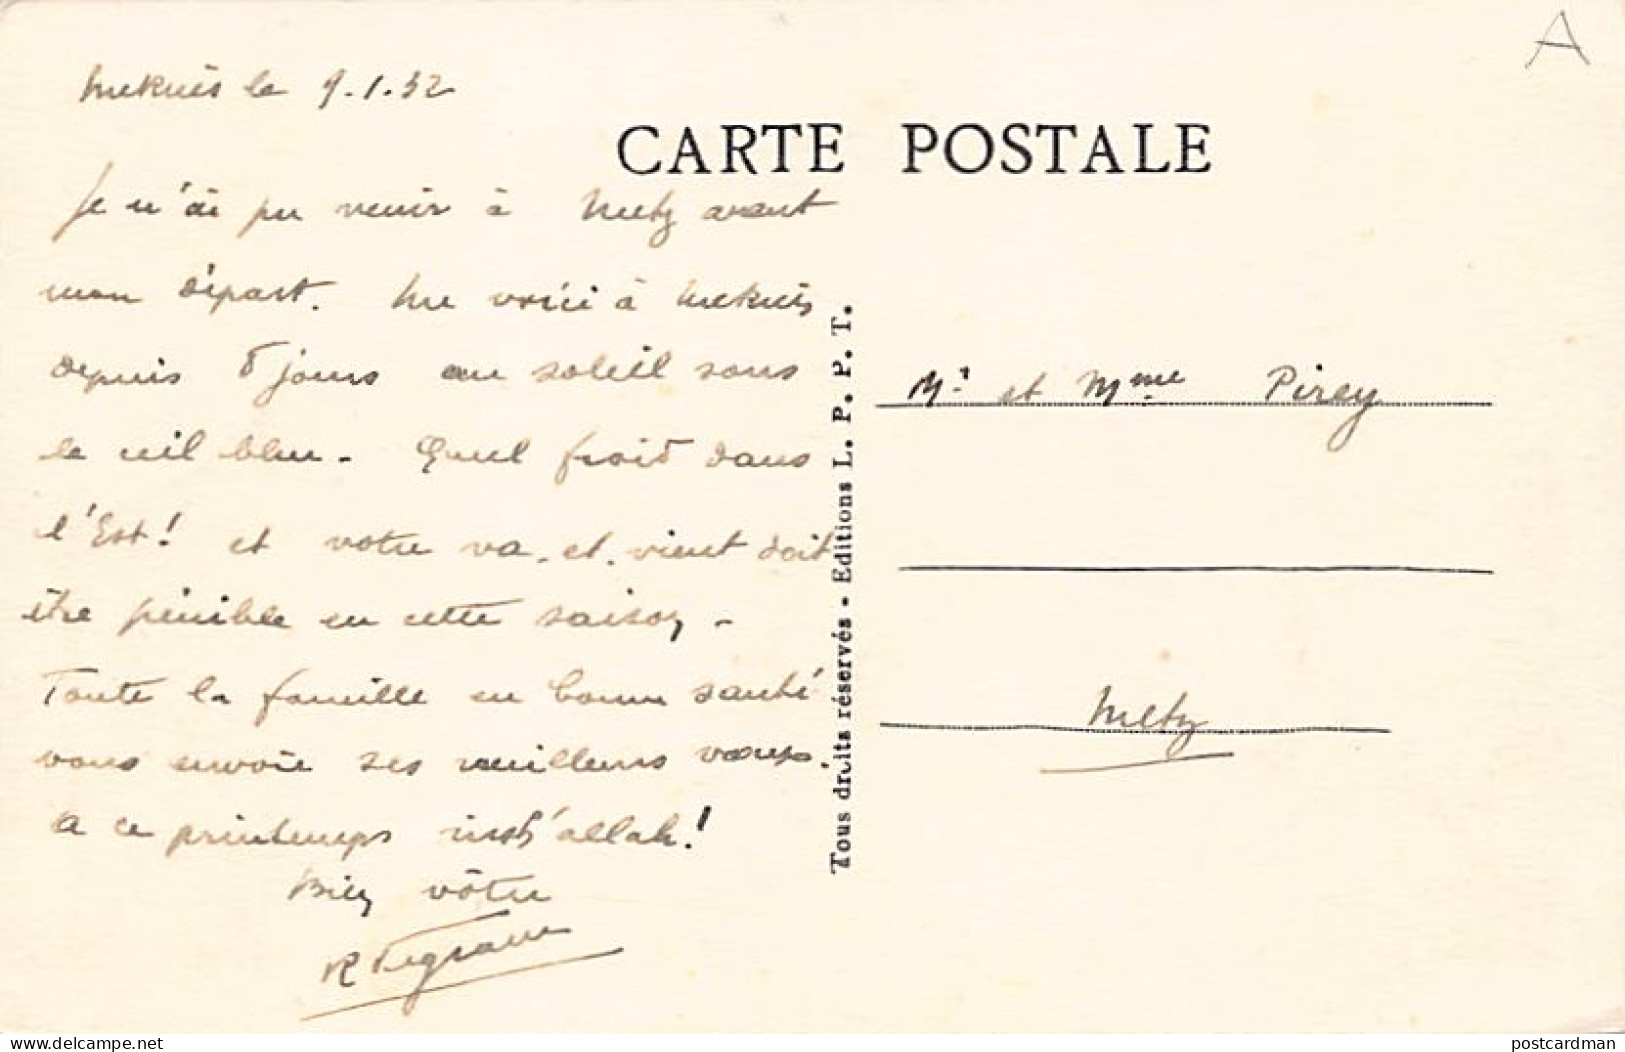 A
Meknès le 9.1.32
CARTE POSTALE
Je n'ai pu venir à Metz avant
mon départ. Me voici à Meknès
depuis 8 jours au soleil sous
le ciel bleu - Quel froid dans
l'Est! et votre va-et-vient doit
être pénible en cette saison -
Toute la famille en bonne santé
vous envoie ses meilleurs vœux.
A ce printemps insh'allah!
Bien vôtre
R
Mr et Mme Pirey
Metz
Tous droits réservés - Editions L. P. P. T.
delcampe.net
postcardman